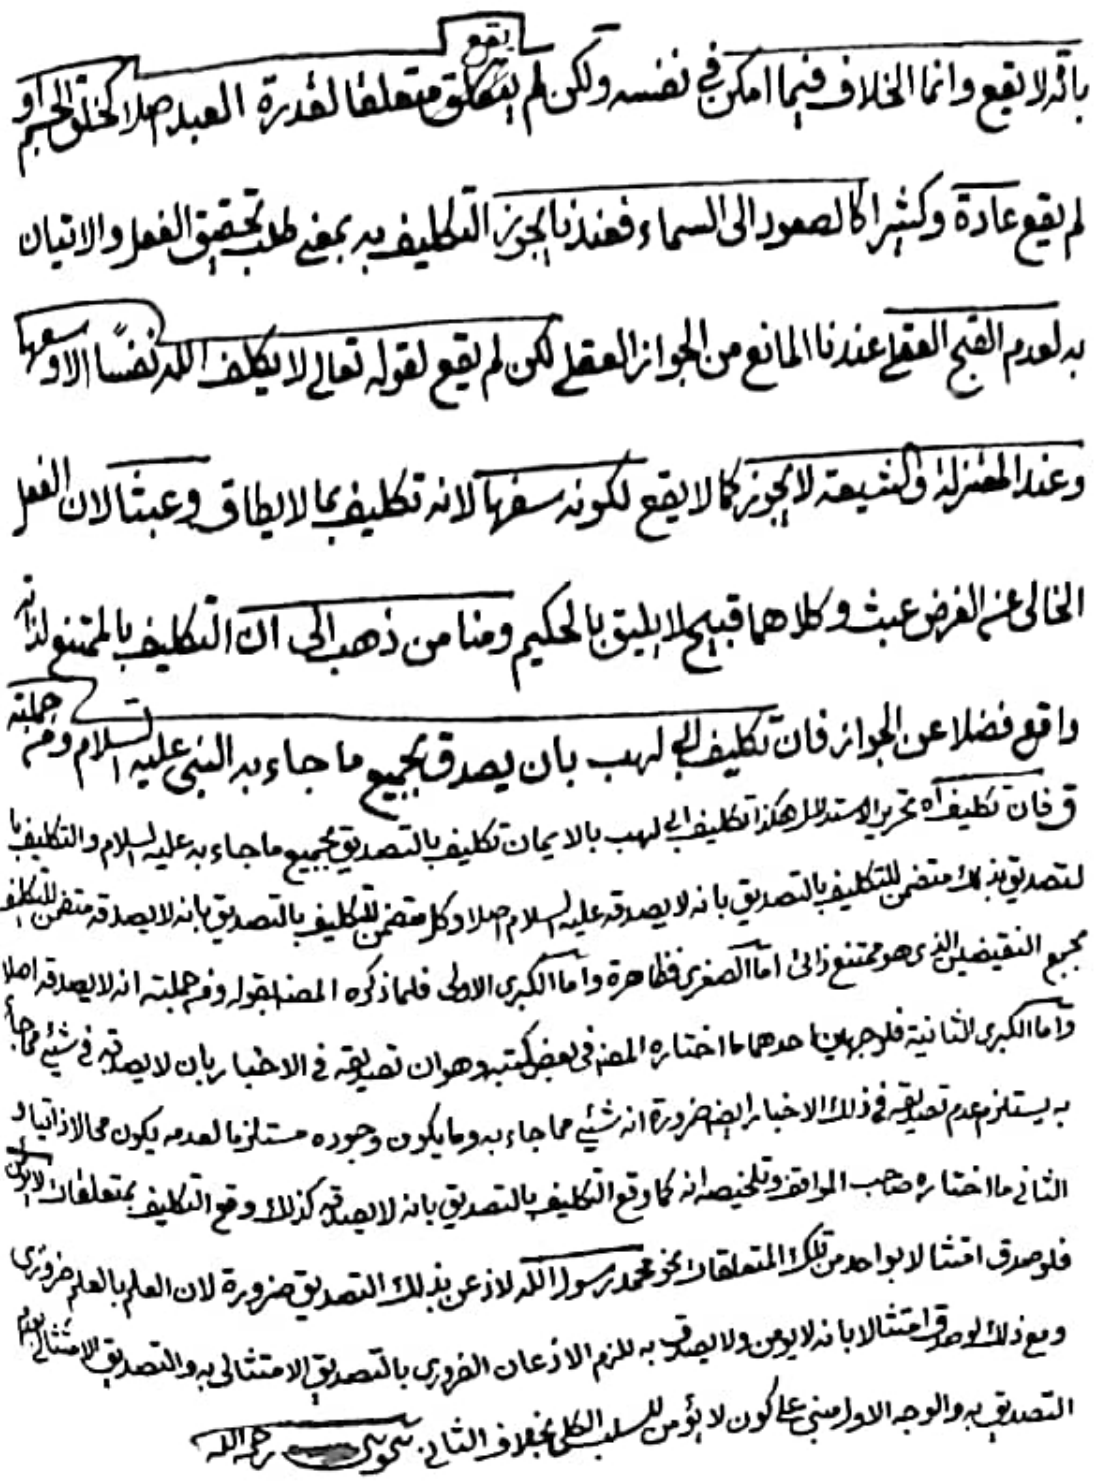 بأنه لا يقع وانما الخلاف فيما امكن في نفسه ولكن لم يقع متعلقا لقدرة العبد اصلا كخلق الجسم او
لم يقع عادة وكثيرا كالصعود الى السماء فعندنا يجوز التكليف به بمعنى طلب تحقيق الفعل والاتيان
به لعدم القبح العقلي عندنا المانع من الجواز العقلي لكن لم يقع لقوله تعالى لا يكلف الله نفسًا الا وسعها
وعند المعتزلة والشيعة لا يجوز كما لا يقع لكونه سفها لانه تكليف بما لا يطاق وعبثا لان الفعل
الخالي عن الغرض عبث وكلاهما قبيح لا يليق بالحكيم ومنا من ذهب الى ان التكليف بالممتنع لذاته
واقع فضلا عن الجواز فان تكليف ابي لهب بان يصدق بجميع ما جاء به النبي عليه السلام ومن جملته
ق فان تكليف اه تحرير الاستدلال هكذا تكليف ابي لهب بالايمان تكليف بالتصديق بجميع ما جاء به عليه السلام والتكليف با
لتصديق بذلك متضمن للتكليف بالتصديق بانه لا يصدقه عليه السلام اصلا وكل متضمن للتكليف بالتصديق بانه لا يصدقه متضمن للتكليف
بجمع النقيضين الذي هو ممتنع ذاتي اما الصغرى فظاهرة واما الكبرى الاولى فلما ذكره المصنف بقوله ومن جملته انه لا يصدقه اصلا
واما الكبرى الثانية فلوجهين احدهما ما اختاره المصنف في بعض كتبه وهو ان تصديقه في الاخبار بان لا يصدقه في شيئ مما جاء
به يستلزم عدم تصديقه في ذلك الاخبار ايضا ضرورة انه شيئ مما جاء به وما يكون وجوده مستلزما لعدمه يكون محالا ذاتيا و
الثاني ما اختاره صاحب المواقف وتلخيصه انه كما وقع التكليف بالتصديق بانه لا يصدقه كذلك وقع التكليف بمتعلقات
فلو صدق امتثالا بواحد من تلك المتعلقات نحو محمد رسول الله لاذعن بذلك التصديق ضرورة لان العلم بالعلم ضروري
ومع ذلك لو صدق امتثالا بانه لا يومن ولا يصدق به للزم الاذعان الضروري بالتصديق الامتثالي به والتصديق الامتثالي بعدم
التصديق به والوجه الاول مبني على كون لا يؤمن للسلب الكلي بخلاف الثاني رحمه الله